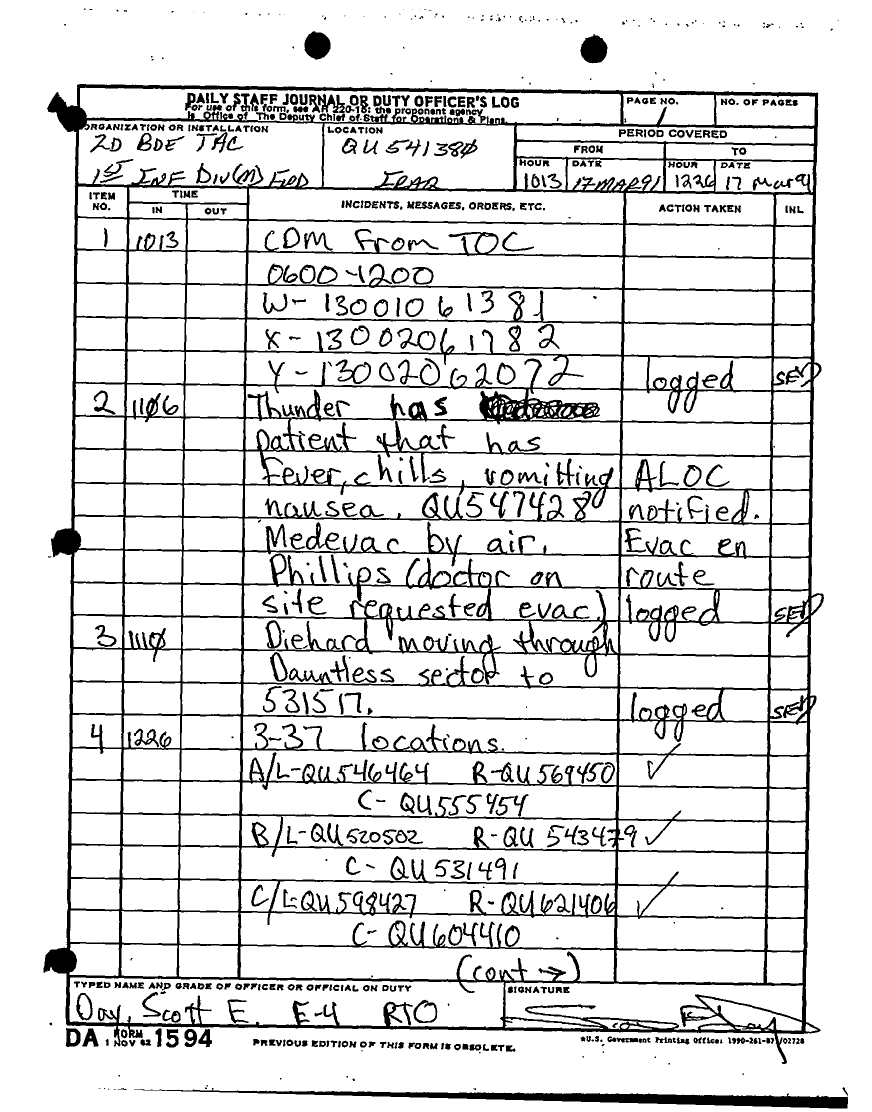 DAILY STAFF JOURNAL OR DUTY OFFICER'S LOG
For use of this form, see AR 220-15; the proponent agency
is Office of The Deputy Chief of Staff for Operations & Plans.
PAGE NO.
1
NO. OF PAGES
ORGANIZATION OR INSTALLATION
2D BDE TAC
1ST INF DIV(M) FWD
LOCATION
QU541380
IRAQ
PERIOD COVERED
FROM TO
HOUR DATE HOUR DATE
1013 17MAR91 1226 17 Mar 91
ITEM NO. TIME IN OUT INCIDENTS, MESSAGES, ORDERS, ETC. ACTION TAKEN INL
1 1013 CDM From TOC
0600-1200
W- 13001061381
X- 13002061782
Y- 13002062072 logged SED
2 1106 Thunder has
patient that has
Fever, chills, vomitting ALOC
nausea. QU547428 notified.
Medevac by air. Evac en
Phillips (doctor on route
site requested evac.) logged SED
3 1110 Diehard moving through
Dauntless sector to
531517. logged SED
4 1226 3-37 locations.
A/L-QU546464 R-QU569450 ✓
C- QU555454
B/L-QU520502 R-QU 543479 ✓
C- QU531491
C/L-QU598427 R-QU621406 ✓
C- QU604410
(cont →)
TYPED NAME AND GRADE OF OFFICER OR OFFICIAL ON DUTY
Day, Scott E. E-4 RTO
SIGNATURE
Scott E Day
DA FORM 1 NOV 62 1594
PREVIOUS EDITION OF THIS FORM IS OBSOLETE.
*U.S. Government Printing Office: 1990-261-87 /02728